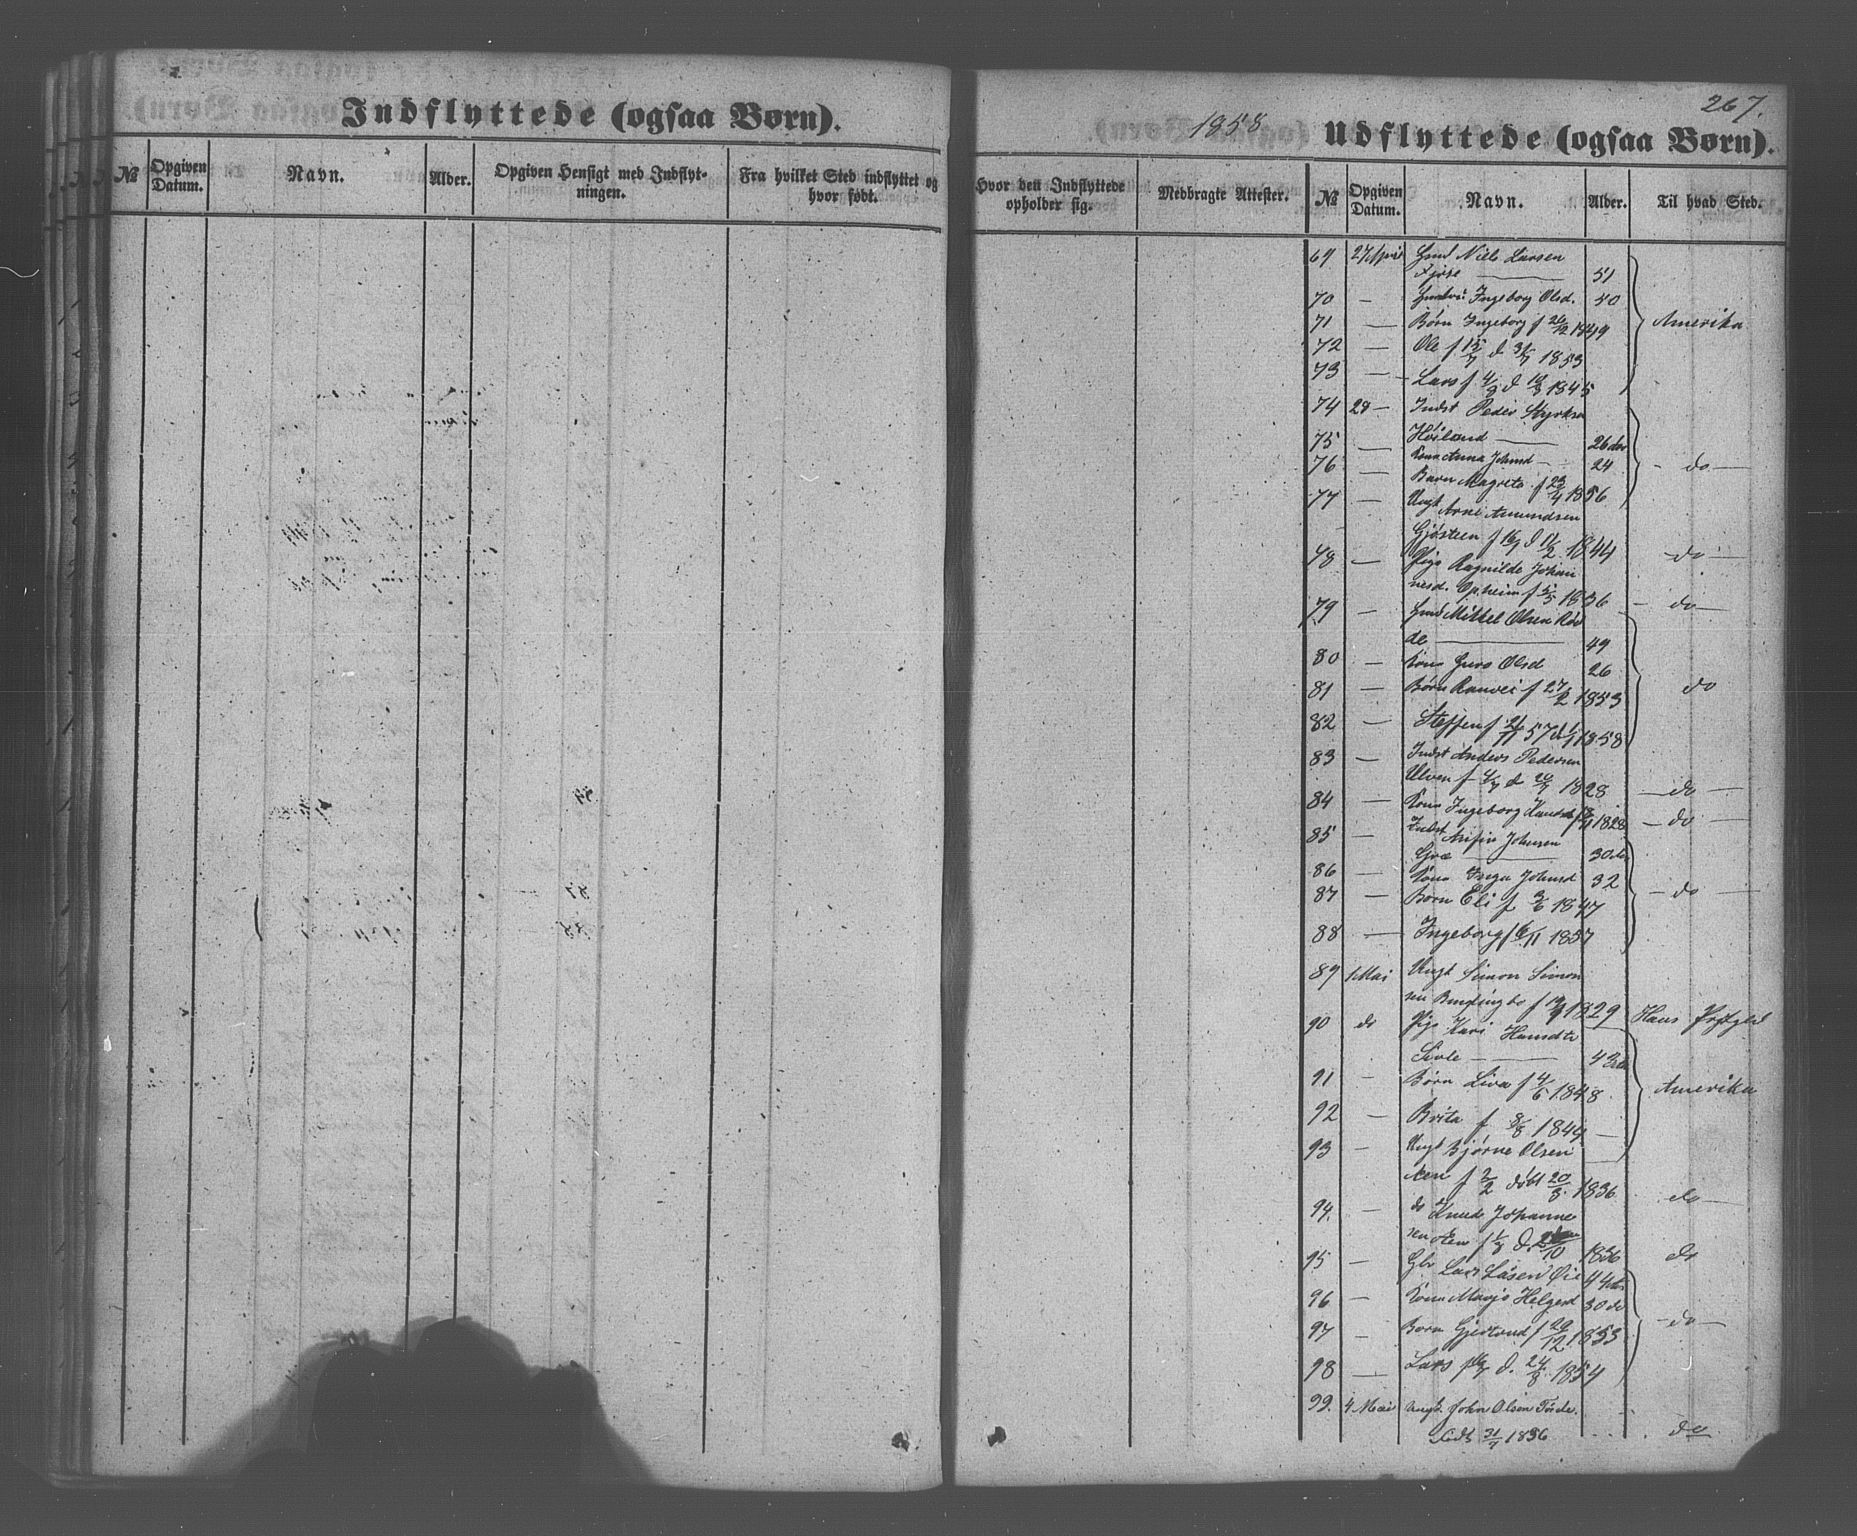 Indflyttede (ogsaa Børn).
№
Opgiven Datum.
Navn.
Alder.
Opgiven Hensigt med Indflyt-
ningen.
Fra hvilket Sted indflyttet og
hvor født.
267.
1858
Udflyttede (ogsaa Børn).
Hvor den Indflyttede
opholder sig.
Medbragte Attester.
№
Opgiven Datum.
Navn.
Alder.
Til hvad Sted.
69 27 April Gmd Niels Larsen
51
70 — Ingeborg Olsd. 40
71 — Børn Ingeborg f 26/12 1849 Amerika
72 — Ole f 15/7 d 31/7 1853
73 — Lars f 4/3 d 19/3 1845
74 28 — Indst Peder Styrks
75 — Høiland — 26 do
76 — Kone Anna Johnsd — 24 — do —
Barn Magrete f 23/4 1856
77 — Ungk Arne Amundsen
Gjøsteen f 16/1 d 11/2 1844 do —
78 — Pige Ragnilde Johan
nesd. Opheim f 5/5 1836 — do —
79 — Gmd Mikkel Olsen Røv
de — 49
80 — Kone Guro Olsd 26
81 — Børn Ranvei f 27/2 1853 do
82 — Steffen f 21/11 57 d 1/1 1858
83 — Indst Anders Pedersen
Ulven f d 20/7 1828 — do —
84 — Kone Ingeborg 1828 — do —
85 — Indst Johnsen
30
86 — Kone Inga Johnsd 32
87 — Børn Eli f 1847 — do —
88 — Ingeborg f 6/11 1857
89 1 Mai Ungk Simon Simon
sen f 1829 Haus Præstgld
90 do Pige Kari Hansdtr
Sivle —
91 — Børn Liva f 4/6 1848 Amerika
92 — Brita f 8/8 1849 —
93 — Ungk Bjørne Olsen
f 2/2 døbt 20/3 1836 do —
94. — do Knud Johanne
sen f d 1836 do
95 — Gbr Lars Øie 44
96 — Kone Helgesd 30 do
97 — Børn Gjertrud f 20/12 1853 — do —
98 — Lars d. 24/8 1854
99. 4 Mai Ungk. John Olsen
født 31/7 1836 do